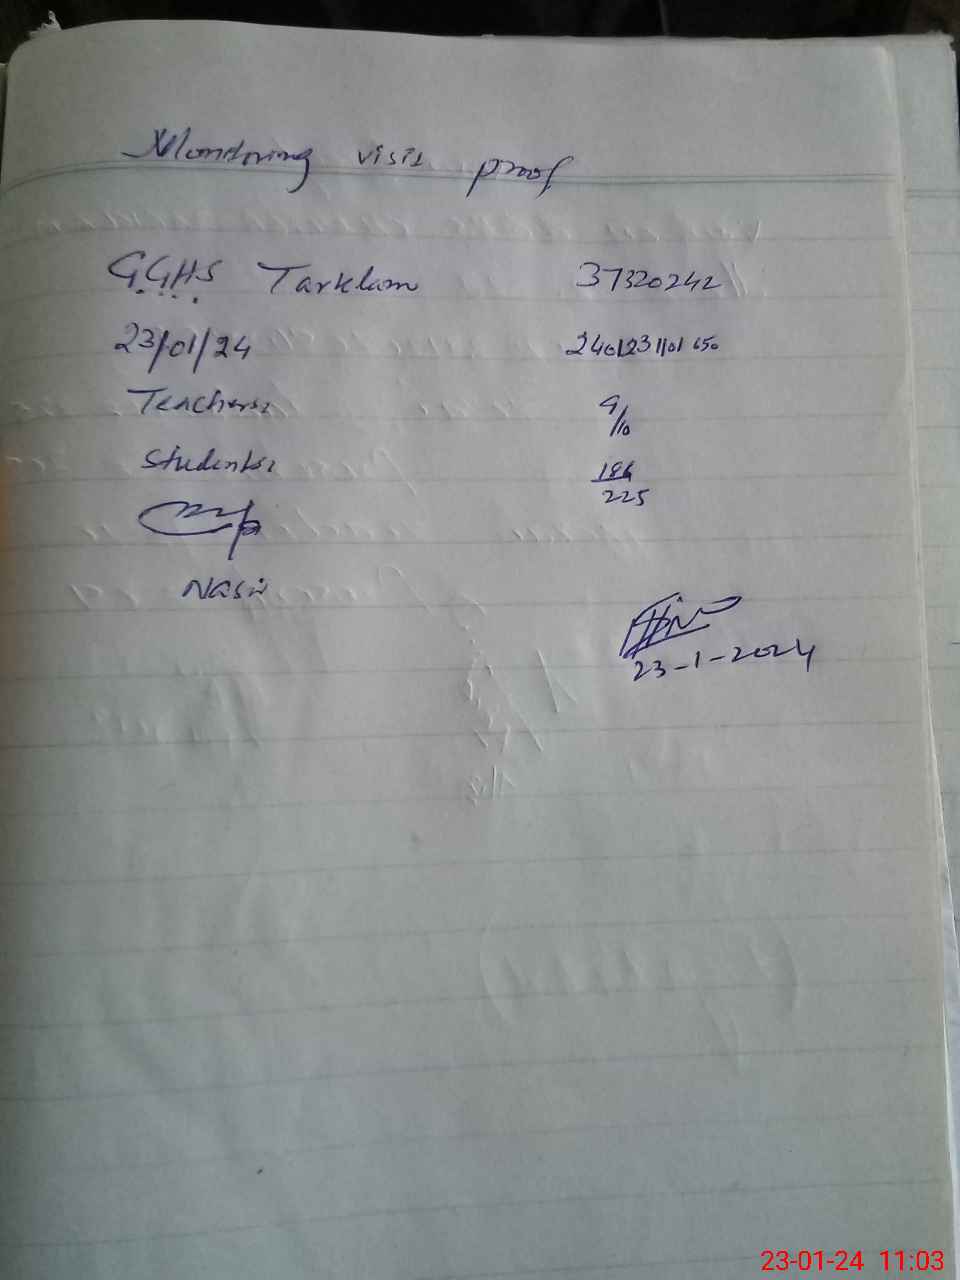 Monitoring visit proof
GGHS Tarklam 37320242
23/01/24
Teachers: 9/10
Students: 
225
Nasir
23-1-2024
23-01-24 11:03